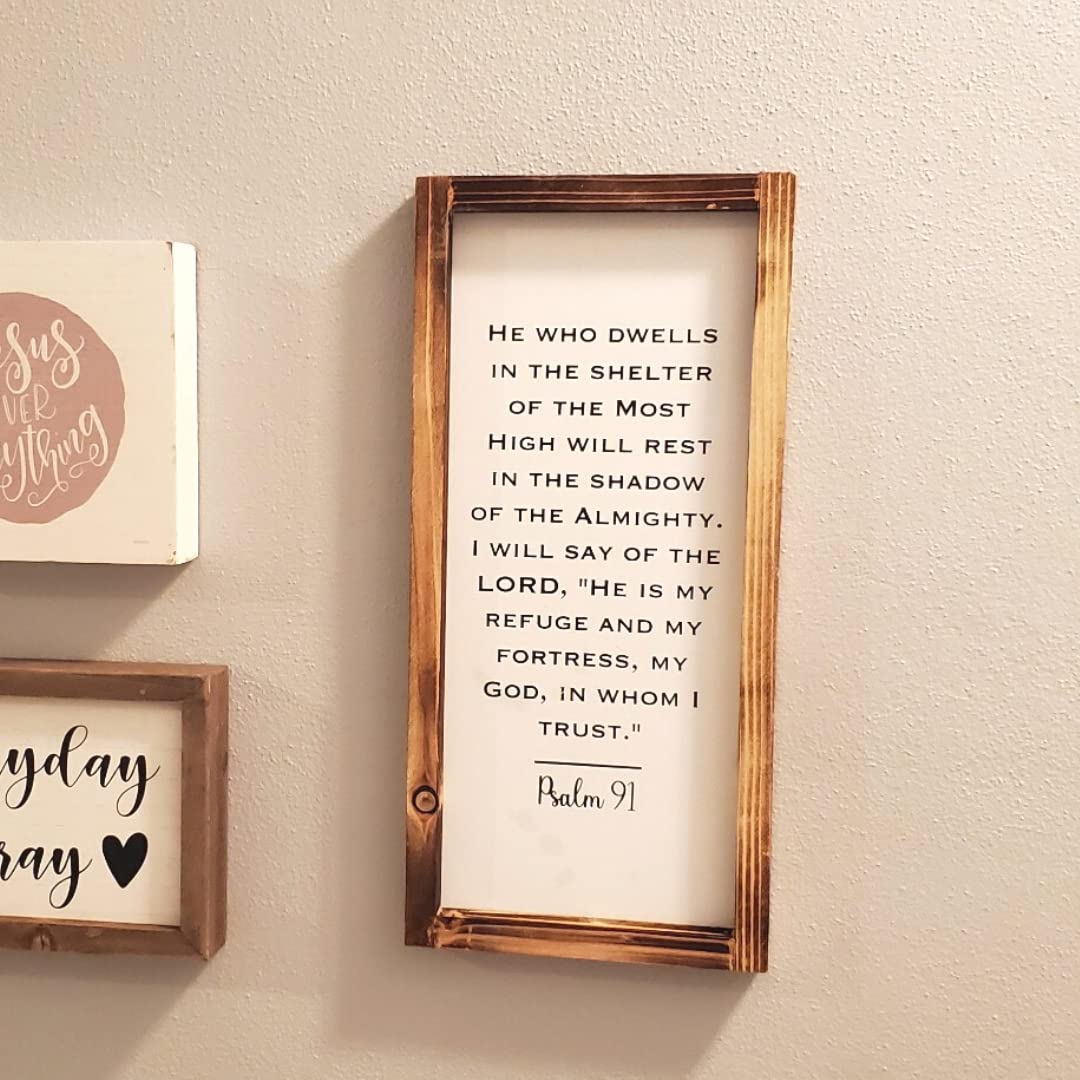 HE WHO DWELLS
IN THE SHELTER
OF THE MOST
HIGH WILL REST
IN THE SHADOW
OF THE ALMIGHTY.
I WILL SAY OF THE
LORD, "HE IS MY
REFUGE AND MY
FORTRESS, MY
GOD, IN WHOM I
TRUST."
Psalm 91